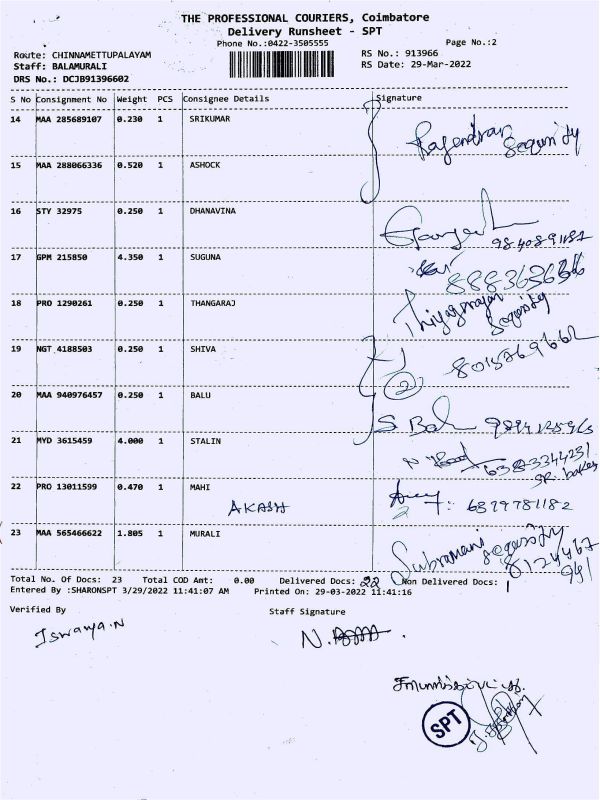 THE PROFESSIONAL COURIERS, Coimbatore
Delivery Runsheet - SPT
Phone No.:0422-3505555
Page No.:2
Route: CHINNAMETTUPALAYAM
RS No.: 913966
Staff: BALAMURALI
RS Date: 29-Mar-2022
DRS No.: DCJB91396602
S No Consignment No Weight PCS Consignee Details Signature
14 MAA 285689107 0.230 1 SRIKUMAR
Rajendran
Segurity
15 MAA 288066336 0.520 1 ASHOCK
16 STY 32975 0.250 1 DHANAVINA
9840891187
17 GPM 215850 4.350 1 SUGUNA
18 PRO 1290261 0.250 1 THANGARAJ
Thiyagarajan
Segurity
19 NGT 4188503 0.250 1 SHIVA
8015769662
2
20 MAA 940976457 0.250 1 BALU
S Bal
21 MYD 3615459 4.000 1 STALIN
6383344231
SR. bakery
22 PRO 13011599 0.470 1 MAHI
AKASH
6379781182
23 MAA 565466622 1.805 1 MURALI
Subramani Segurity
8124467
941
Total No. Of Docs: 23 Total COD Amt: 0.00 Delivered Docs: 22 Non Delivered Docs: 1
Entered By :SHARONSPT 3/29/2022 11:41:07 AM Printed On: 29-03-2022 11:41:16
Verified By Staff Signature
Iswarya.N
SPT